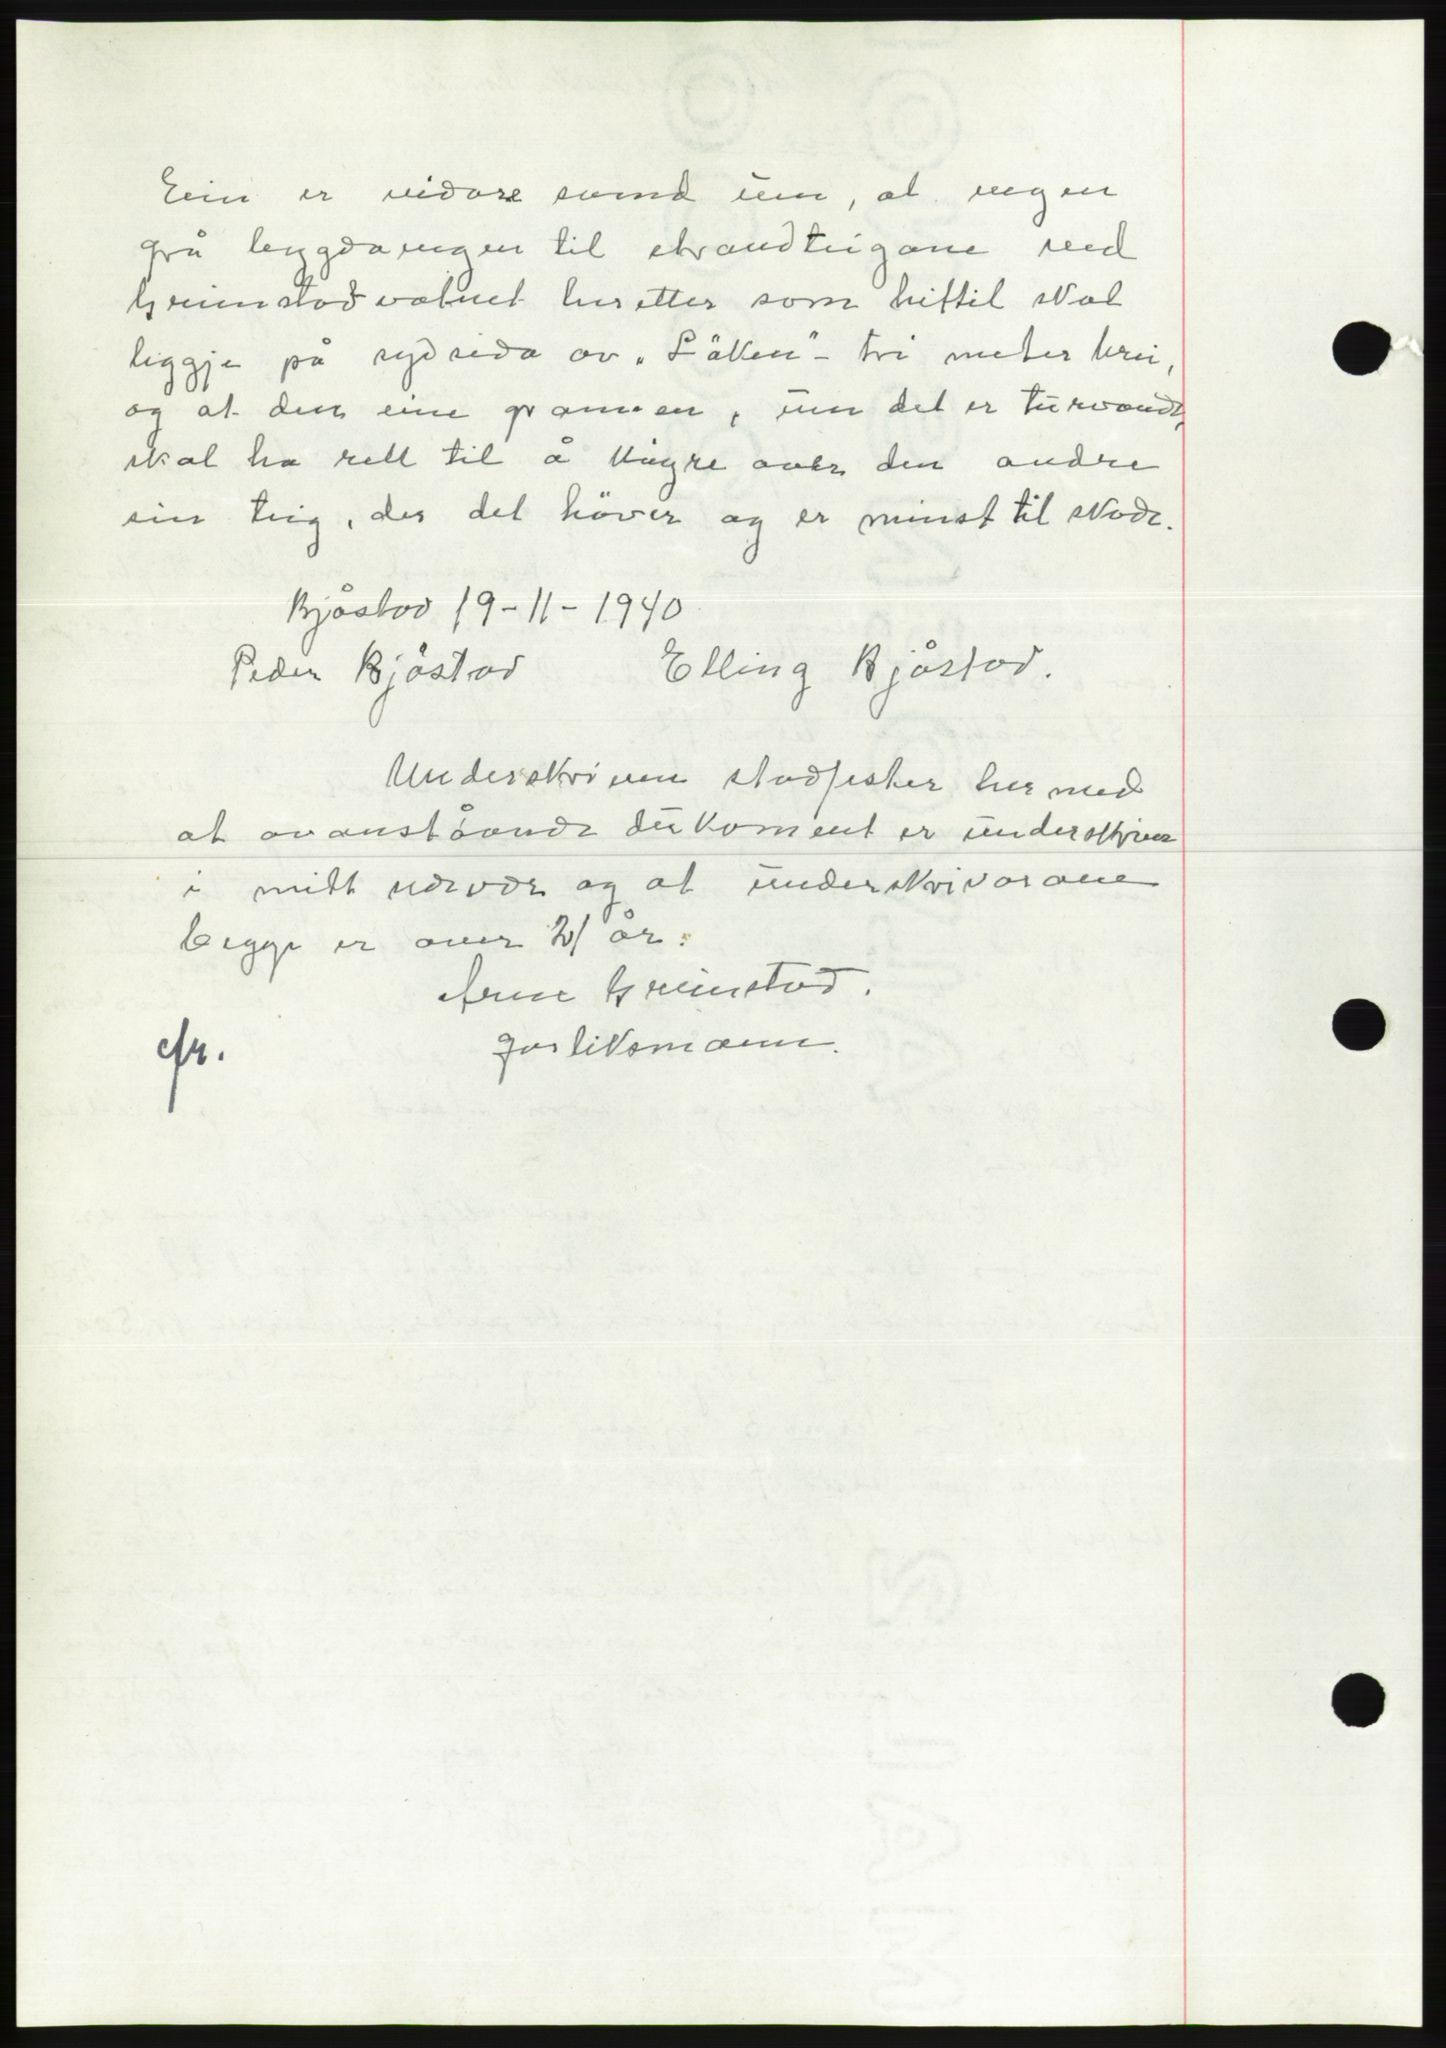 Ein er vidare samd um, at vegen
frå bygdavegen til strandteigane ved
Grimstadvatnet heretter som hittil skal
liggje på sydsida av „Låken" - tri meter brei,
og at den eine grannen, um det er turvande,
skal ha rett til å køyre over den andre
sin teig, der det höver og er minst til skade.
Bjåstad 19-11-1940
Peder Bjåstad Elling Bjåstad.
Underskriven stadfester hermed
at ovanståande dukoment er underskrive
i mitt nærvær og at underskrivarane
begge er over 21 år.
Arne Grimstad.
forliksmann.